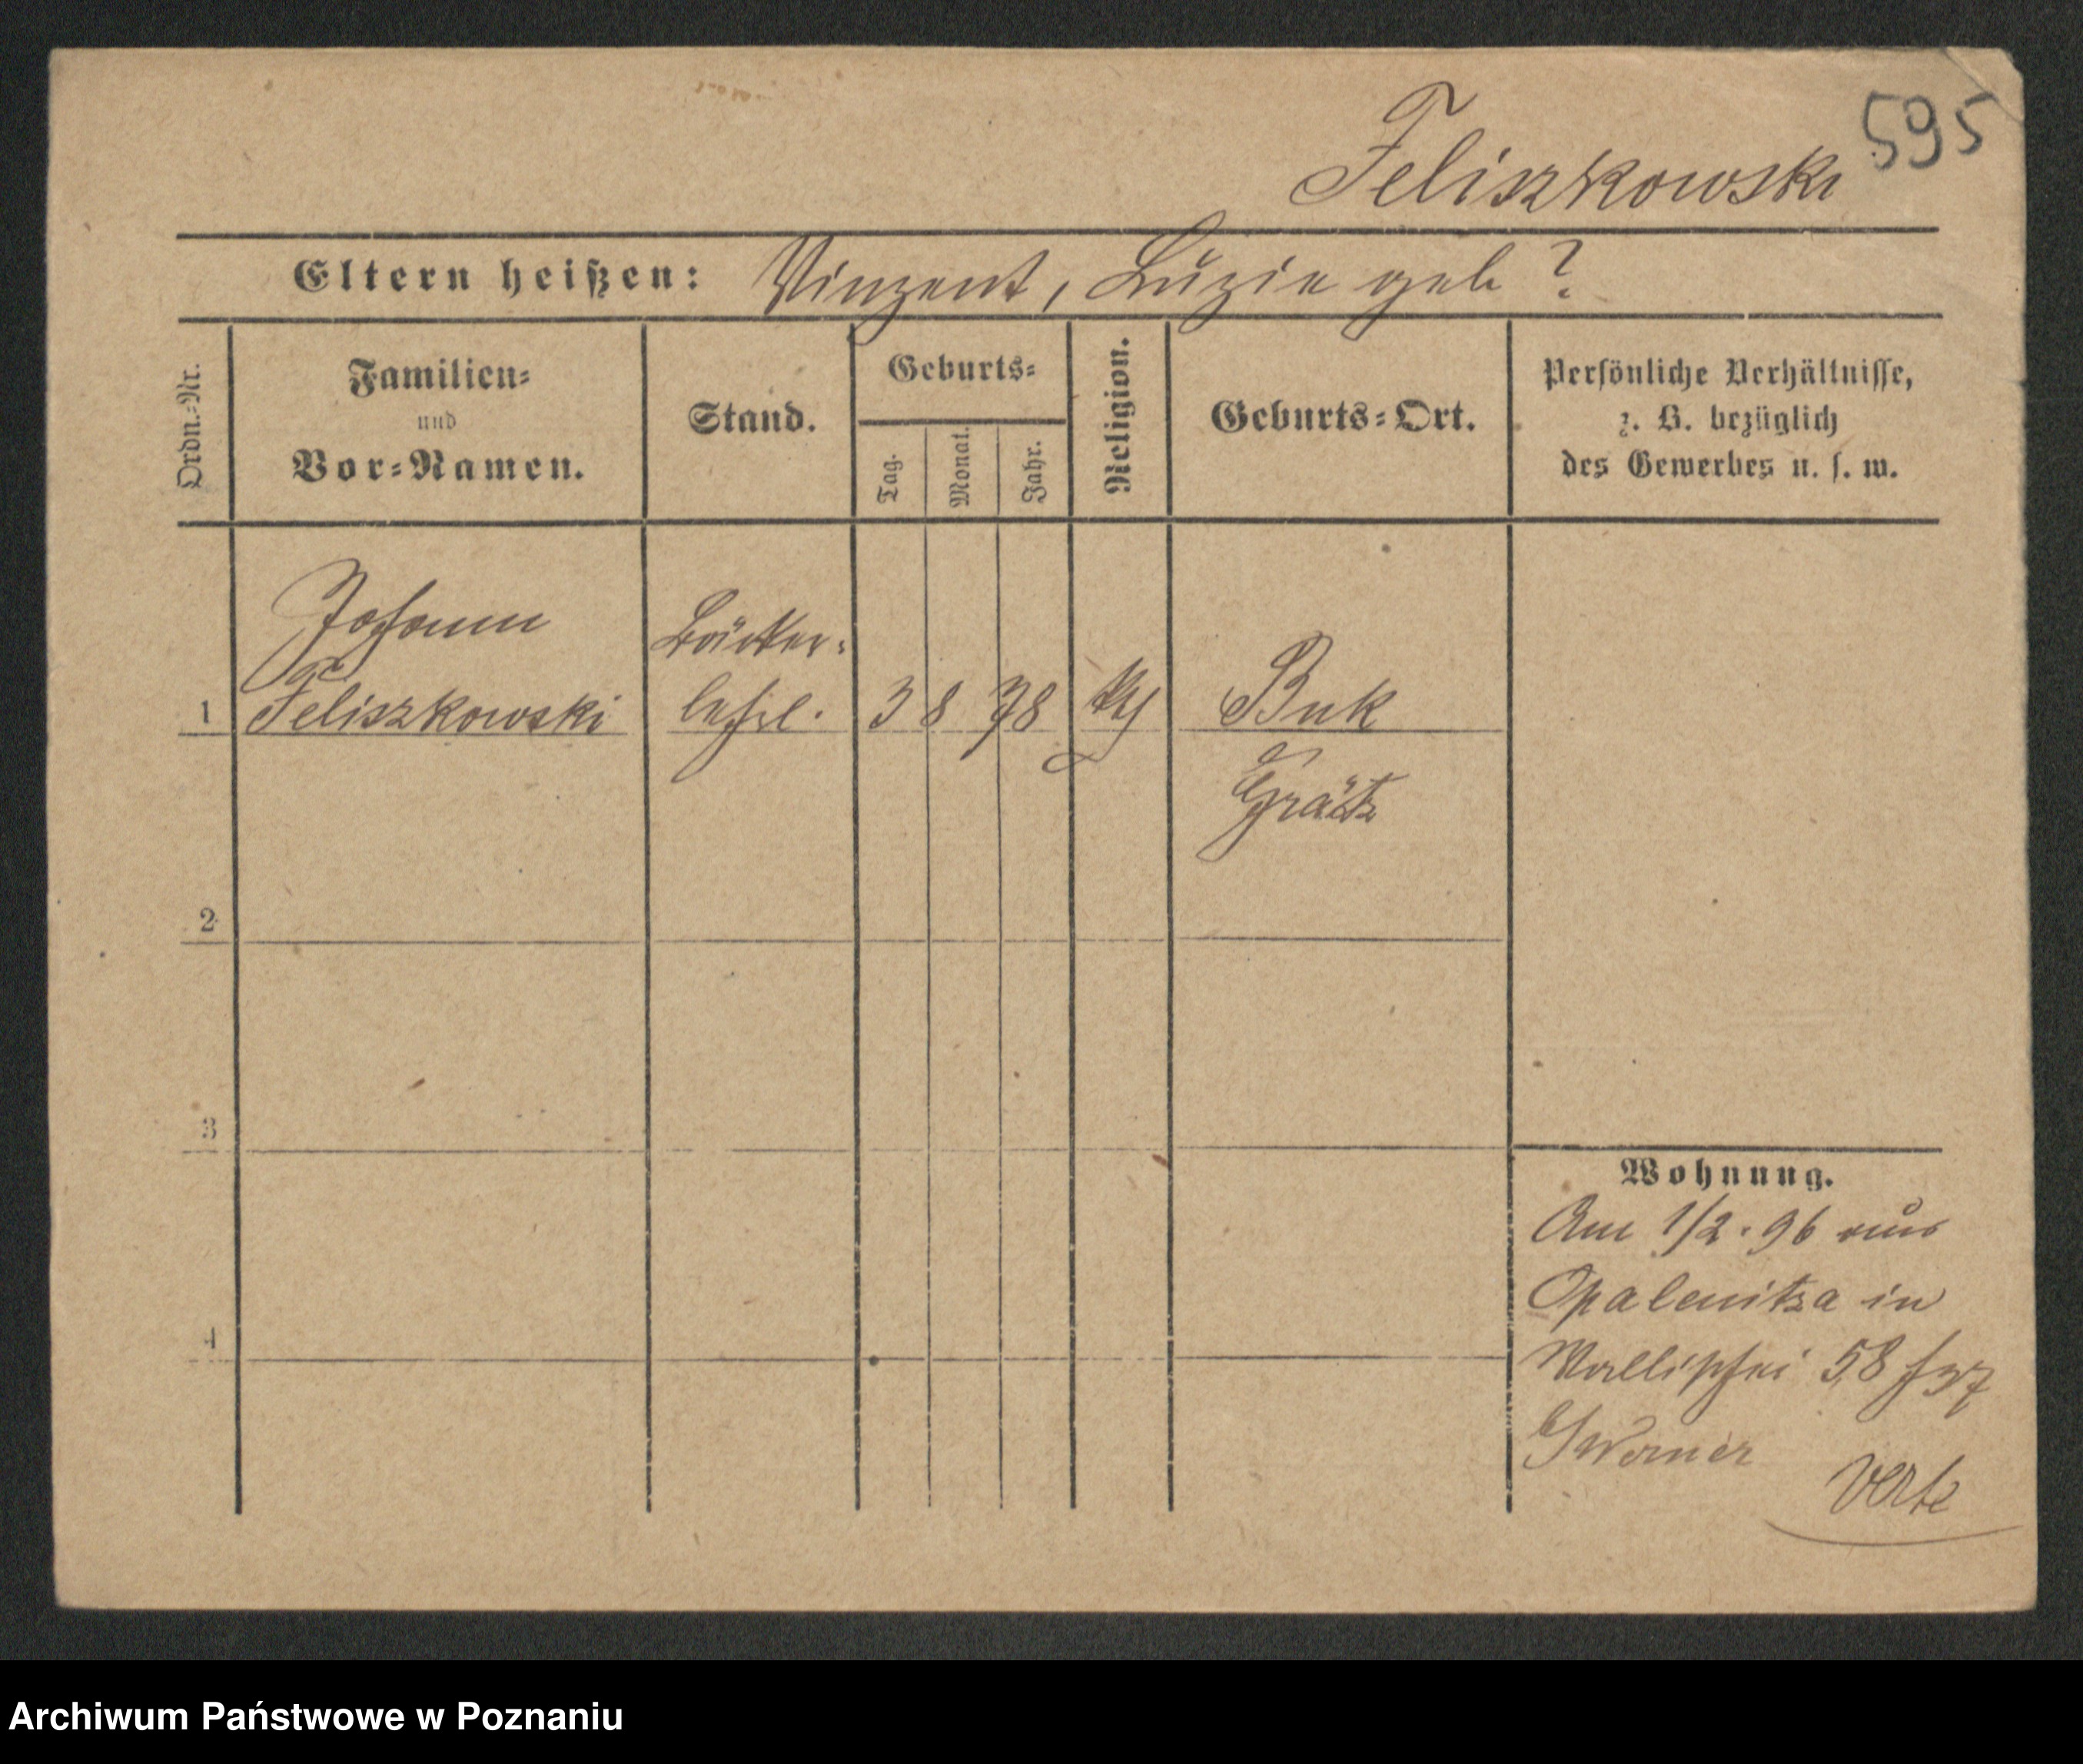 595
Feliszkowski
Eltern heißen: Vinzent, Luzie geb ?
Ordn.-Nr.
Familien-
und
Vor-Namen.
Stand.
Geburts-
Tag.
Monat.
Jahr.
Religion.
Geburts-Ort.
Persönliche Verhältnisse,
z. B. bezüglich
des Gewerbes u. s. w.
Johann
Bäcker-
1 Feliszkowski lehrl. 3 8 78 Buk
Grätz
2
3
4
Wohnung.
Am 1/2. 96 aus
Opalenitza in
Wallischei 58
verte
Archiwum Państwowe w Poznaniu